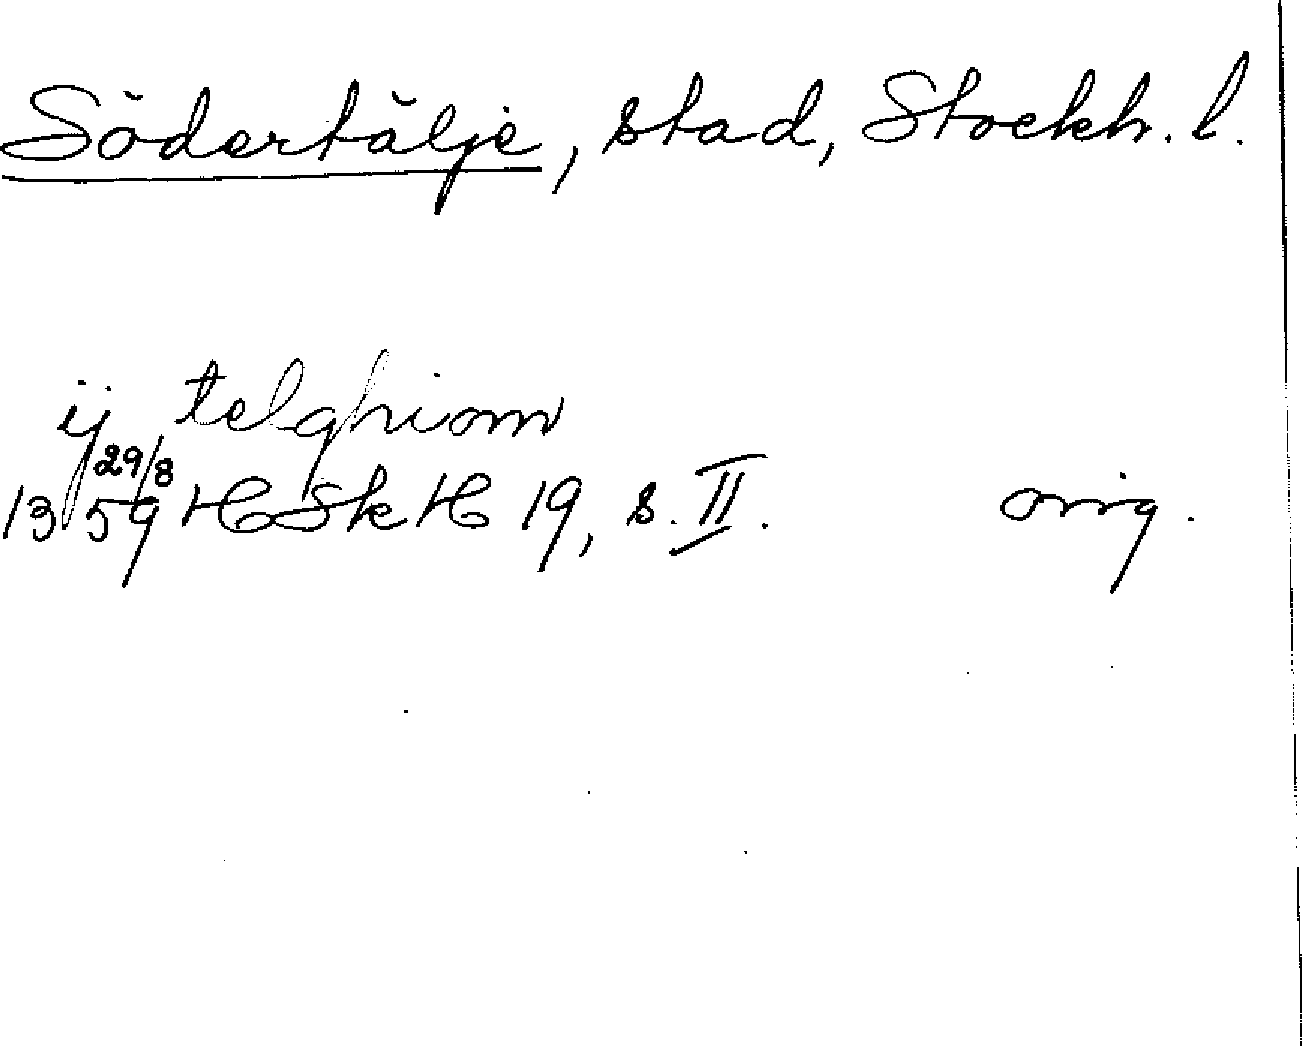 Södertälje, stad, Stockh. l.
ij telghiom
1359 29/8 HSkH 19, s. II. orig.